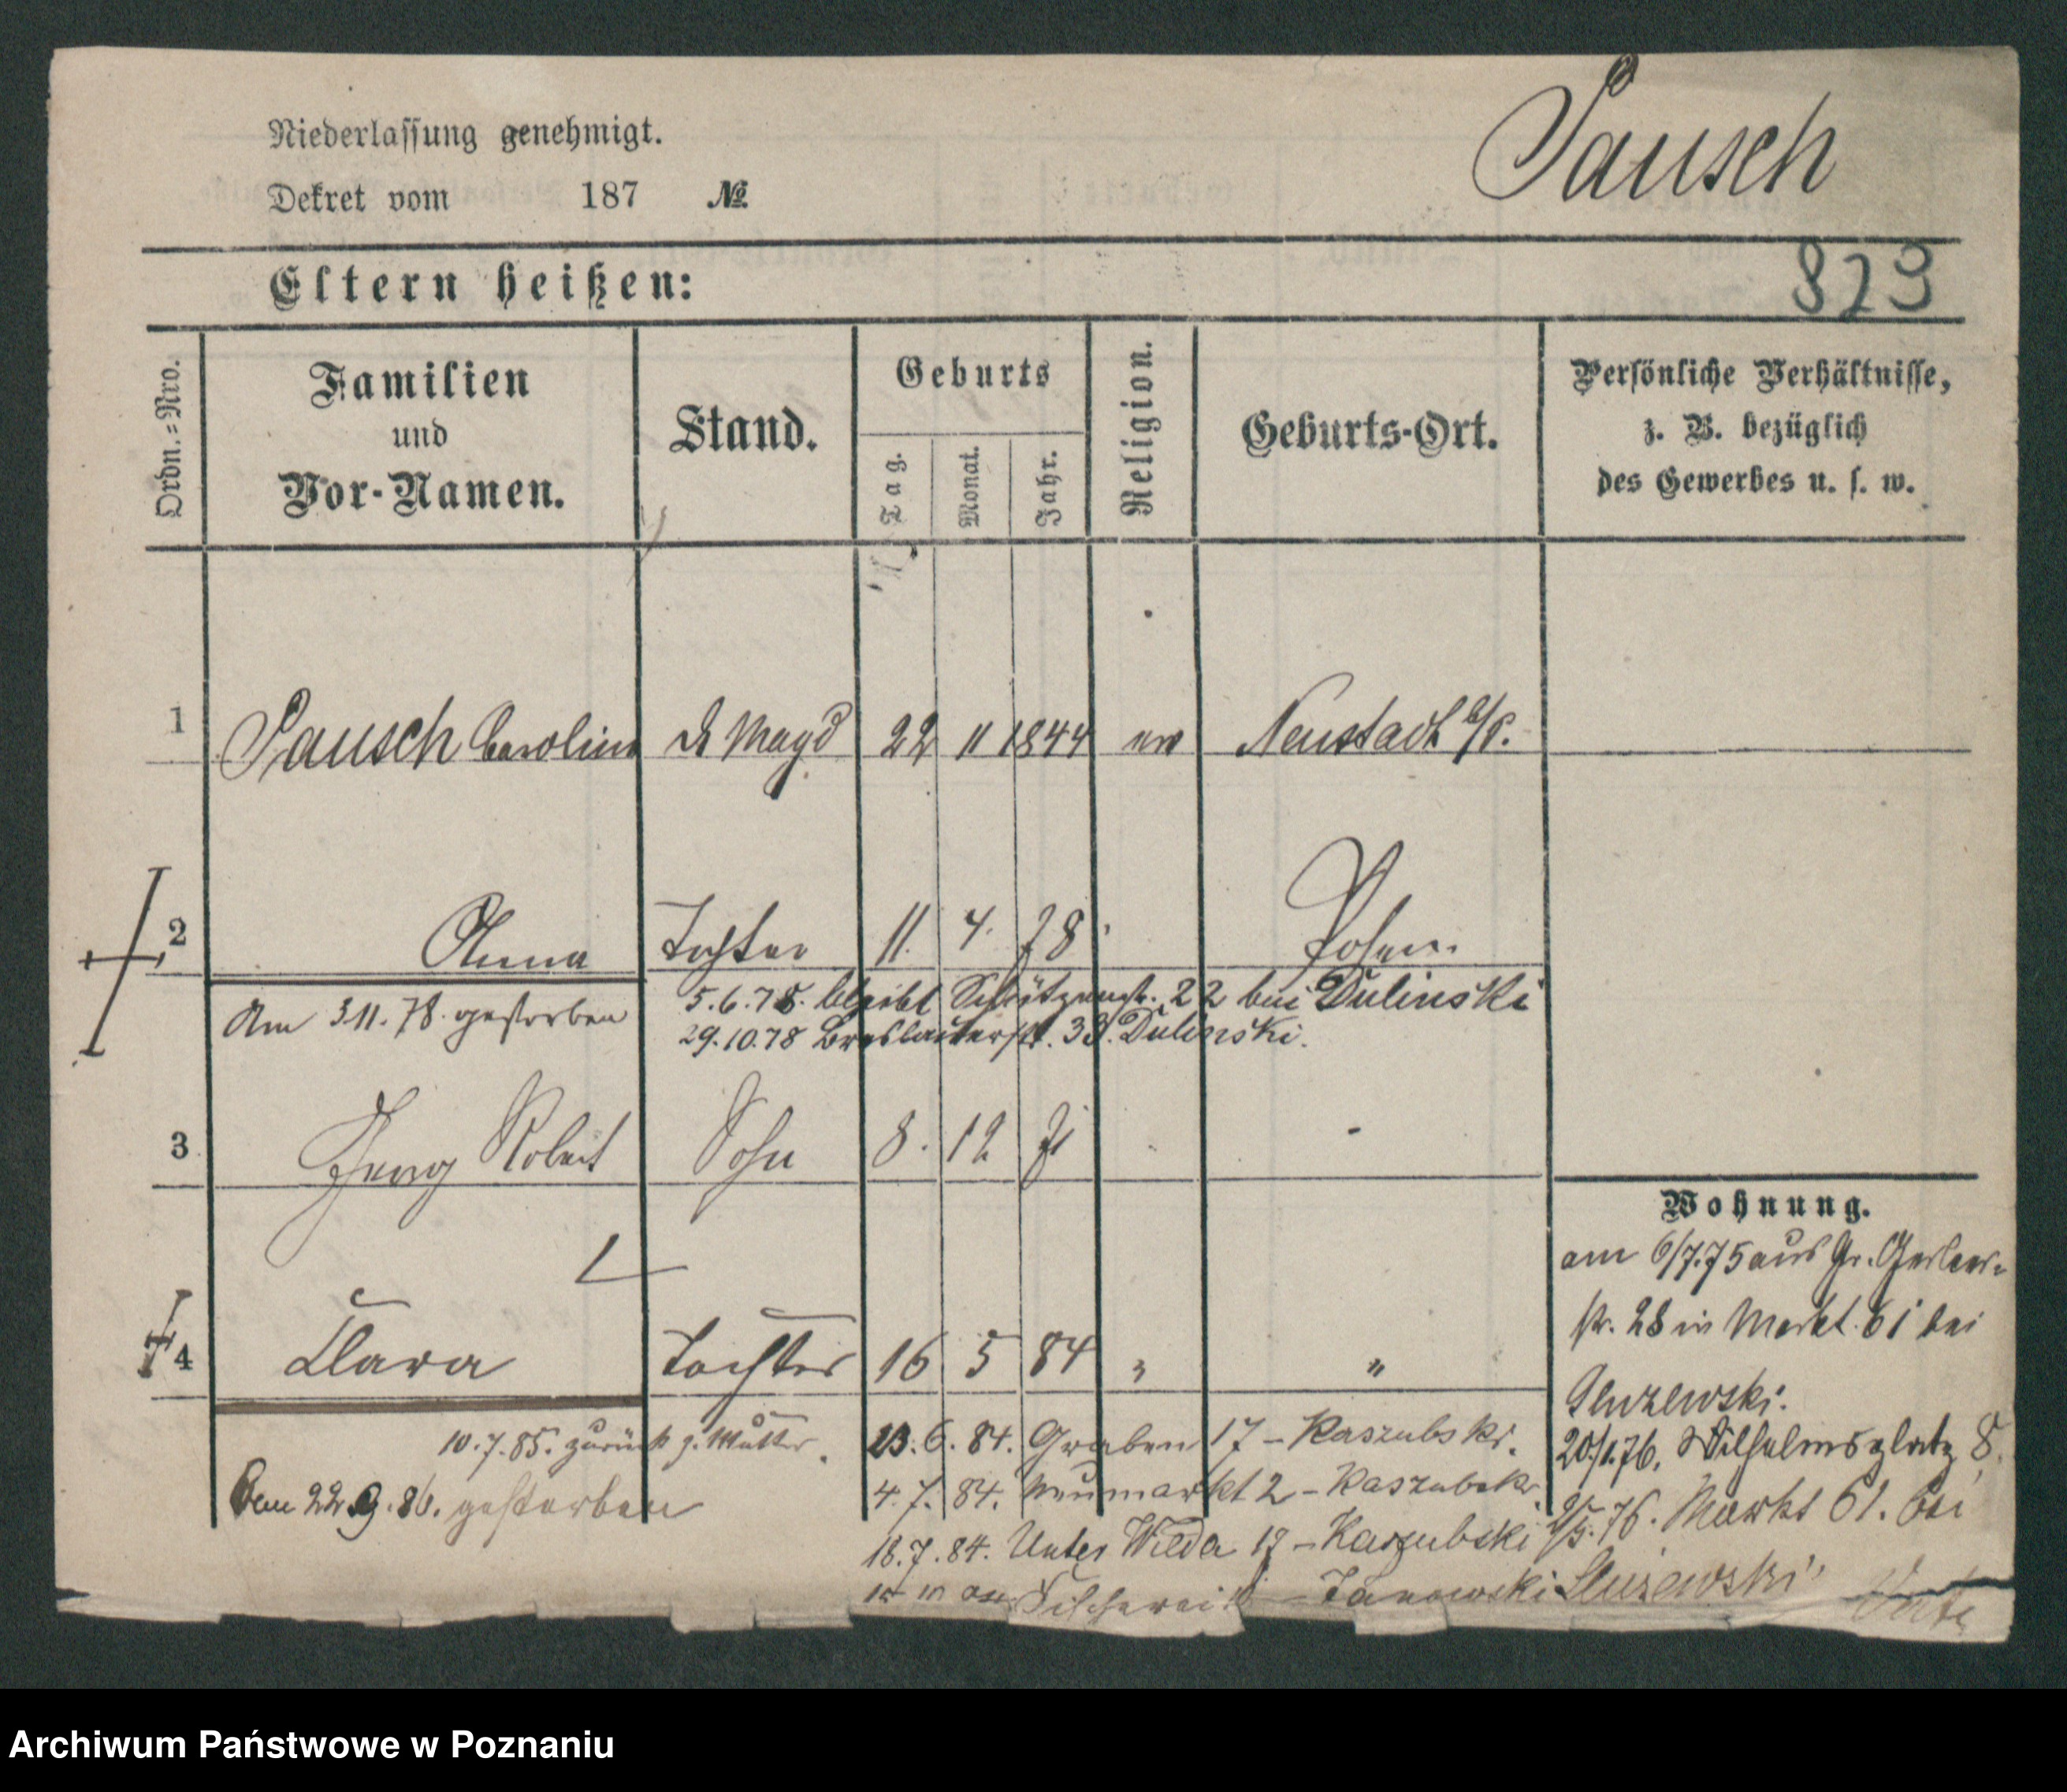 Niederlassung genehmigt.
Dekret vom 187 №
Pausch
Eltern heißen:
823
Ordn.=Nro.
Familien
und
Vor-Namen.
Stand.
Geburts
Tag.
Monat.
Jahr.
Religion.
Geburts-Ort.
Persönliche Verhältnisse,
z. B. bezüglich
des Gewerbes u. s. w.
1 Pausch Caroline d Magd 22 11 1844 ev Neustadt a/
2 Anna Tochter 11. 4. 78 Posen.
Am 3.11.78. gestorben
5.6.78. bleibt Schützenstr. 22 bei Dulinski
29.10.78 Breslauerstr. 33. Dulinski.
3 Georg Robert Sohn 8. 12 71
4 Clara Tochter 16 5 84 " "
10.7.85. zurück z. Mutter.
Den 22.9.86. gestorben
23.6.84. Graben 17 - Kaszubski.
4.7.84. Neumarkt 2 - Kaszubsk
18.7.84. Unter Wilda 17 - Kaszubski
Fischerei - Janowski
Wohnung.
am 6/7.75 aus Gr. Gerber-
str. 28 in Markt. 61 bei
Sluzewski.
20/1.76. Wilhelmsplatz 8.
76. Markt 61. bei
Sluzewski
Archiwum Państwowe w Poznaniu